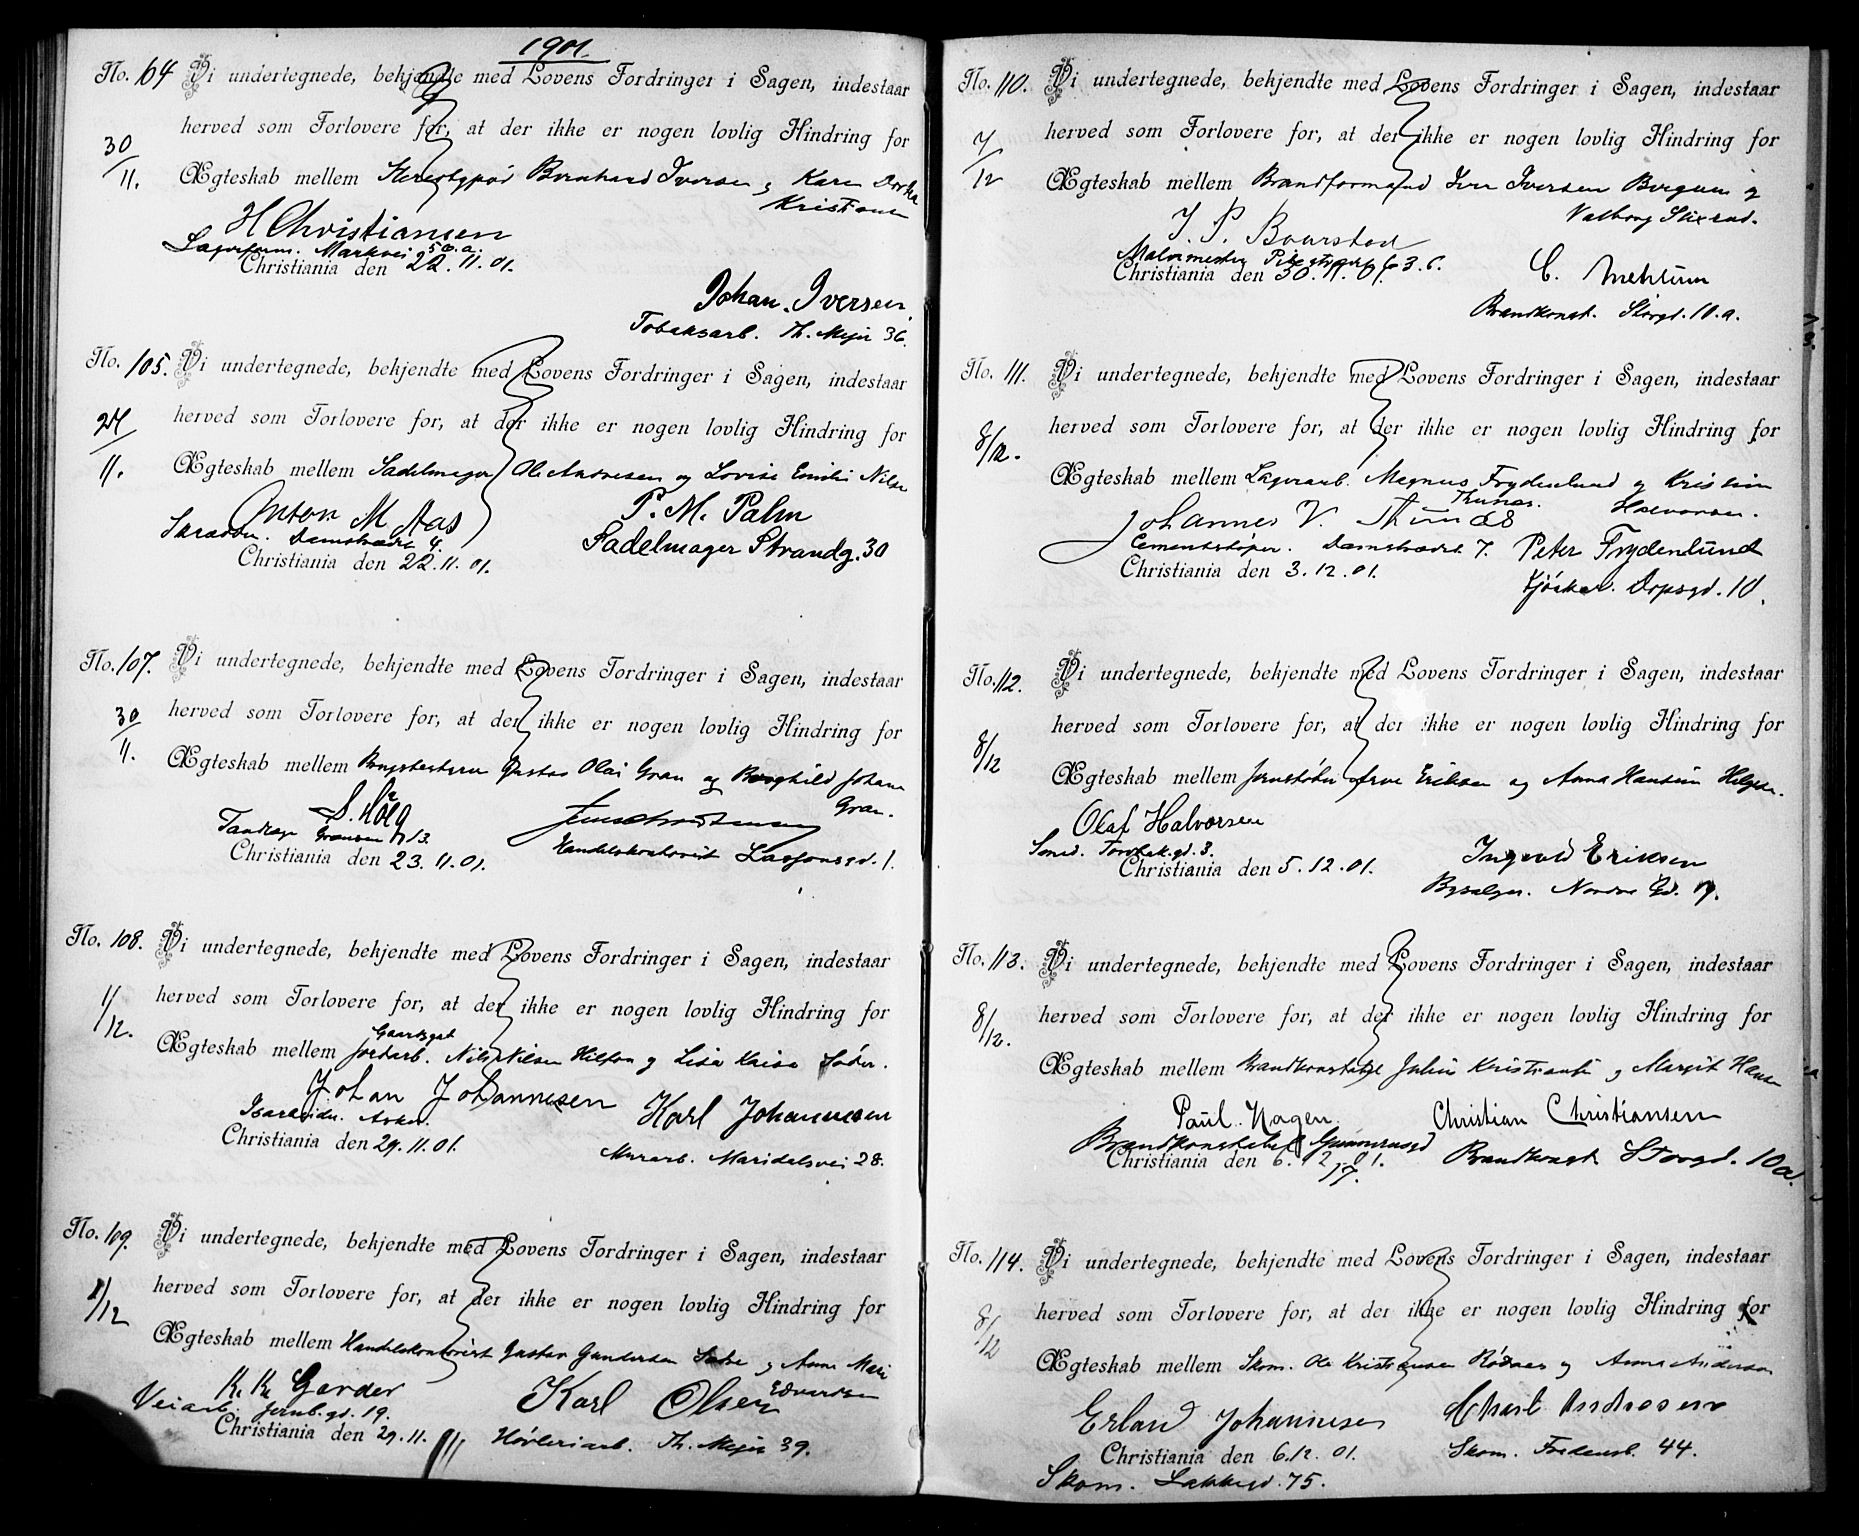 1901.
No. 64 Vi undertegnede, bekjendte med Lovens Fordringer i Sagen, indestaar
herved som Forlovere for, at der ikke er nogen lovlig Hindring for
30/11. Ægteskab mellem Bernhard Iversen og Karen
H Christiansen
Markvei 50.a.
Christiania den 22.11.01.
Johan Iversen.
Tobaksarb. Th. Meyer 36.
No. 105. Vi undertegnede, bekjendte med Lovens Fordringer i Sagen, indestaar
herved som Forlovere for, at der ikke er nogen lovlig Hindring for
11. Ægteskab mellem Sadelmager Ole Andresen og Lovise Emilie Nilse
Anton M Aas P. M. Palm
Damstrædet 4. Sadelmager Strandg. 30
Christiania den 22.11.01.
No. 107. Vi undertegnede, bekjendte med Lovens Fordringer i Sagen, indestaar
herved som Forlovere for, at der ikke er nogen lovlig Hindring for
30/11. Ægteskab mellem Gustav Olai Gran og Borghild Johane
Gran.
Grænsen 13. Handelskontorist
Christiania den 23.11.01.
No. 108. Vi undertegnede, bekjendte med Lovens Fordringer i Sagen, indestaar
herved som Forlovere for, at der ikke er nogen lovlig Hindring for
1/12. Ægteskab mellem Jordarb. Nils Nilsen og Lisa Kaisa
Johan Johannesen Karl Johannesen
Asker.
Christiania den 29.11.01. Murarb. Maridalsvei 28.
No. 109. Vi undertegnede, bekjendte med Lovens Fordringer i Sagen, indestaar
herved som Forlovere for, at der ikke er nogen lovlig Hindring for
1/12 Ægteskab mellem Handelskontorist Gustav Gundersen og Anna Mari
Edvardsen
K. K. Garder Karl Olsen
Veiarb. Jernb.gd. 19.
Christiania den 29.11. Høvleriarb. Th. Meyer 39.
No. 110. Vi undertegnede, bekjendte med Lovens Fordringer i Sagen, indestaar
herved som Forlovere for, at der ikke er nogen lovlig Hindring for
7/12 Ægteskab mellem Brandformand Iver Iversen Borgum og
Valborg
J. P. Baarstad
Malermester Pilestrædet 63.6.
Christiania den 30.11.01.
Brandkonst. Storgd. 10.a.
No. 111. Vi undertegnede, bekjendte med Lovens Fordringer i Sagen, indestaar
herved som Forlovere for, at der ikke er nogen lovlig Hindring for
8/12. Ægteskab mellem Lagerarb. Magnus Frydenlund og Kristine
Halvorsen.
Thunæs.
Johannes V. Thunæs
Cementstøper. Damstrædet 7. Peter Frydenlund
Christiania den 3.12.01.
Dopsgd. 10.
No. 112. Vi undertegnede, bekjendte med Lovens Fordringer i Sagen, indestaar
herved som Forlovere for, at der ikke er nogen lovlig Hindring for
8/12 Ægteskab mellem Jernstøber Arne Eriksen og Anna Hansine Helgesen.
Olaf Halvorsen
Smed. Torvbakgd. 3. Ingvald Eriksen
Christiania den 5.12.01.
Nordre Gd. 19.
No. 113. Vi undertegnede, bekjendte med Lovens Fordringer i Sagen, indestaar
herved som Forlovere for, at der ikke er nogen lovlig Hindring for
8/12. Ægteskab mellem Brandkonstabel Julius Kristiansen og Margit Hansen
Paul Hagen Christian Christiansen
Brandkonstabel Brandkonst. Storgd. 10a.
Christiania den 6.12.01.
17.
No. 114. Vi undertegnede, bekjendte med Lovens Fordringer i Sagen, indestaar
herved som Forlovere for, at der ikke er nogen lovlig Hindring for
8/12 Ægteskab mellem Skom. Ole Kristiansen og Anna Anderson
Erland Johannesen Charl Andresen
Christiania den 6.12.01. Skom. Fredensb. 44.
Skom. Lakkegd. 75.